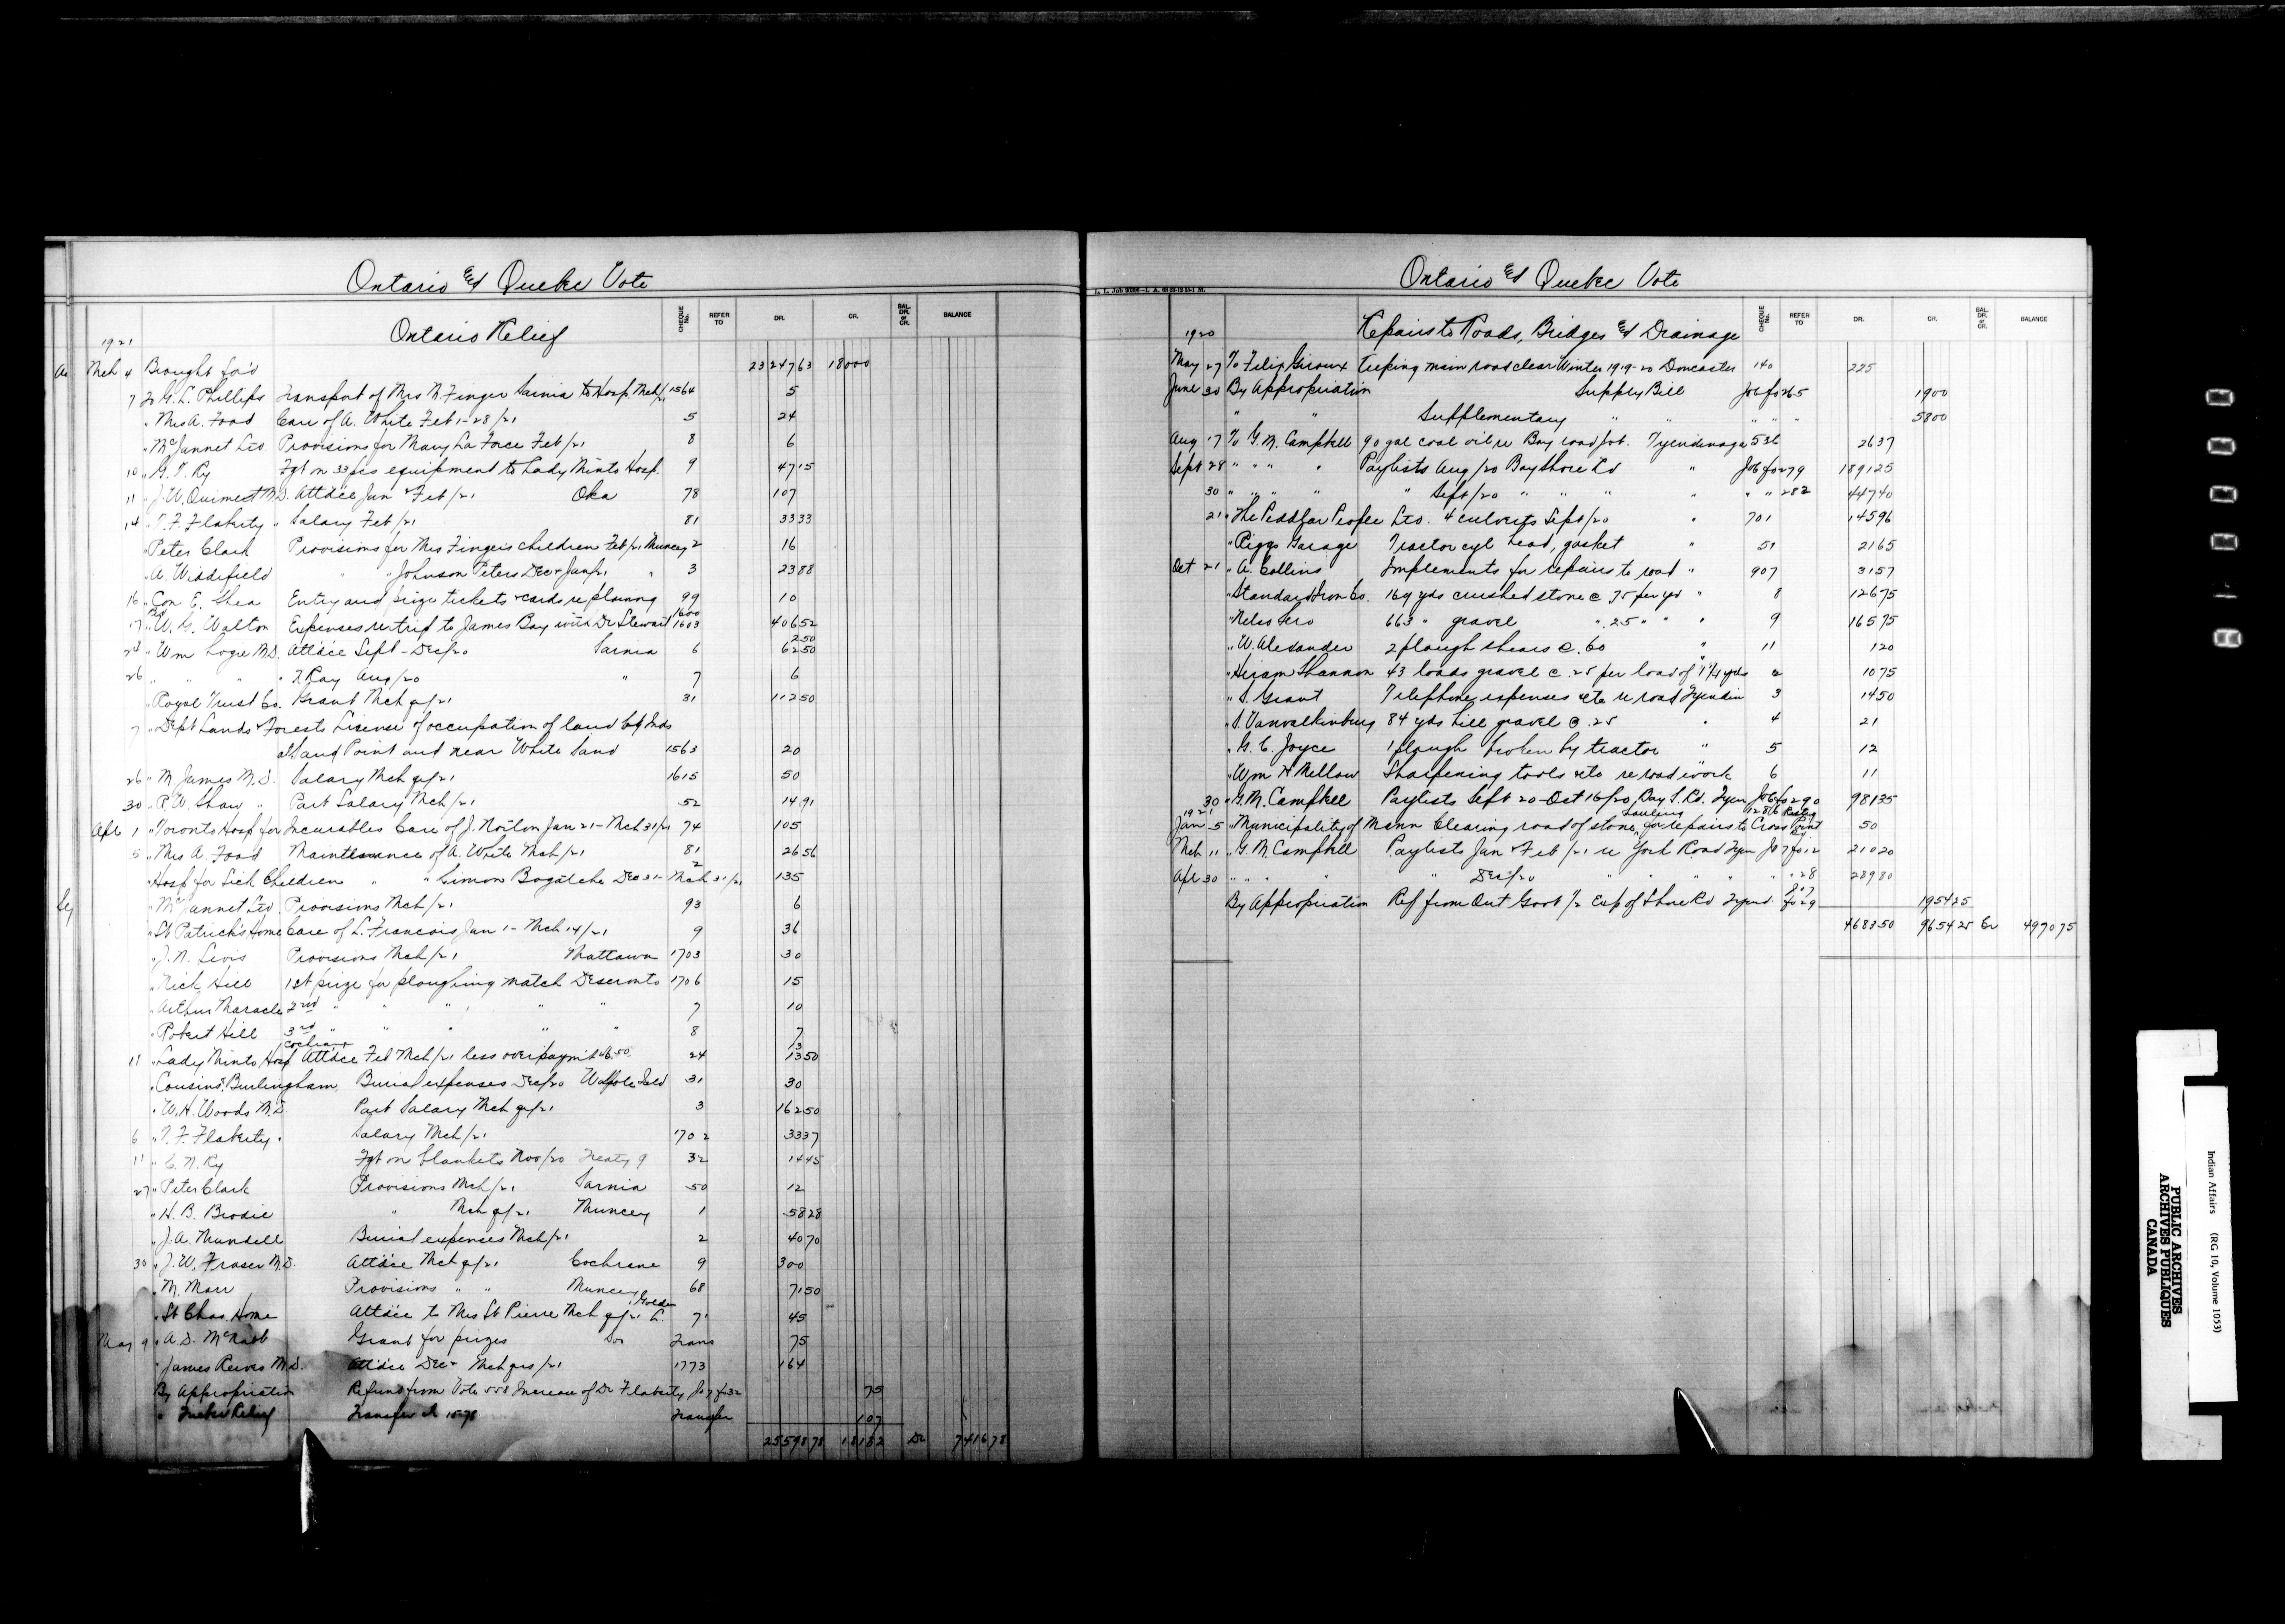 Ontario & Quebec Vote
CHEQUE No. REFER TO DR. CR. BAL. DR. or CR. BALANCE
Ontario Relief
1921
Mch 4 Brought for'd 23247 63 180 00
7 To G. L. Phillips Transport of Mrs N. Finger Sarnia to Hosp. Mch/21 1564 5
" Mrs A. Food Care of A. White Feb 1-28/21 5 24
" McJannet Ltd Provisions for Mary La Force Feb/21 8 6
10 " G. T. Ry Fgt on 33 pcs equipment to Lady Minto Hosp. 9 47 15
11 " J. W. Ouimet M.D. Attd'ce Jan & Feb/21 Oka 78 107
14 " T. F. Flaherty " Salary Feb/21 81 33 33
" Peter Clark Provisions for Mrs Fingers children Feb/21 Muncey 2 16
" A. Widdifield " " Johnson Peters Dec & Jan/21 " 3 23 88
16 " Con E. Shea Entry and prize tickets & cards re plowing 99 10
1600
17 " W. G. Walton Expenses re trip to James Bay with Dr Stewart 1603 406 52
2 50
24 " Wm Logie M.D. Attd'ce Sept - Dec/20 Sarnia 6 62 50
26 " " " " X Ray Aug/20 " 7 6
" Royal Trust Co. Grant Mch qr/21 31 112 50
7 " Dept Lands & Forests License of occupation of land by Inds
at Sand Point and near White Sand 1563 20
26 " M. James M.D. Salary Mch qr/21 1615 50
30 " R. W. Shaw " Part Salary Mch/21 52 14 91
Apr 1 " Toronto Hosp for Incurables Care of J. Norton Jan 21 - Mch 31/21 74 105
5 " Mrs A. Food Maintenance of A. White Mch/21 81 26 56
2
" Hosp for Sick Children " " Simon Bogatche Dec 31 - Mch 31/21 135
" McJannet Ltd Provisions Mch/21 93 6
" St Patrick's Home Care of L. Francois Jan 1 - Mch 14/21 9 36
" J. N. Levis Provisions Mch/21 Mattawa 1703 30
" Rich Hill 1st prize for ploughing match Deseronto 1706 15
" Arthur Maracle 2nd " " " " " 7 10
" Robert Hill 3rd " " " " " 8 7
Cochrane 13
11 " Lady Minto Hosp Attd'ce Feb Mch/21 less overpaymt 46.50 24 13 50
" Cousins Burlingham Burial expenses Dec/20 Walpole Isld 31 30
" W. H. Woods M.D. Part Salary Mch qr/21 3 162 50
6 " T. F. Flaherty " Salary Mch/21 1702 33 37
11 " C. N. Ry Fgt on blankets Nov/20 Treaty 9 32 14 45
27 " Peter Clark Provisions Mch/21 Sarnia 50 12
" H. B. Brodie " Mch qr/21 Muncey 1 58 28
" J. A. Mundell Burial expenses Mch/21 2 40 70
30 " J. W. Fraser M.D. Attd'ce Mch qr/21 Cochrane 9 300
" M. Marr Provisions " " Muncey 68 71 50
Golden
" St Chas. Home Attd'ce to Mrs St Pierre Mch qr/21 L. 71 45
May 9 " A. D. McNabb Grant for prizes Trans 75
" James Reeves M.D. Attd'ce Dec & Mch qrs/21 1773 164
By Appropriation Refund from Vote 558 Increase of Dr Flaherty Jo 7 fo 32 75
" Quebec Relief Transfer 1578 Transfer 107
25598 78 181 82 Dr 7416 78
Ontario & Quebec Vote
L. L. Job
CHEQUE No. REFER TO DR. CR. BAL. DR. or CR. BALANCE
1920 Repairs to Roads, Bridges & Drainage
May 27 To Felix Giroux Keeping main road clear Winter 1919-20 Doncaster 140 225
June 30 By Appropriation Supply Bill Jo 6 fo 265 1900
" " Supplementary " " " " 5800
Aug 17 To G. M. Campbell 90 gal coal oil re Bay road job. Tyendinaga 536 26 37
Sept 28 " " " " Paylists Aug/20 Bay Shore Rd " Jo 6 fo 279 1891 25
30 " " " " " Sept/20 " " " " " " 282 447 40
21 " The Pedlar People Ltd. 4 culverts Sept/20 " 701 145 96
" Riggs Garage Tractor cyl head, gasket " 51 21 65
Oct 21 " A. Collins Implements for repairs to road " 907 31 57
" Standard Iron Co. 169 yds crushed stone @ 75 per yd " 8 126 75
" Nelson Sero 663 " gravel " .25 " " " 9 165 75
" W. Alexander 2 plough shears @ .60 " 11 1 20
" Hiram Shannon 43 loads gravel @ .25 per load of 1 1/4 yds 2 10 75
" S. Grant Telephone expenses etc re road Tyendin 3 14 50
" S. Vanvalkinburg 84 yds hill gravel @ .25 " 4 21
" G. C. Joyce 1 plough broken by tractor " 5 12
" Wm H. Mellow Sharpening tools etc re road work 6 11
30 " G. M. Campbell Paylists Sept 20 - Oct 16/20, Bay S. Rd. Tyen Jo 6 fo 290 981 35
1921 hauling 1286 Restig
Jan 5 " Municipality of Mann Clearing road of stone, for repairs to Cross Point 50
Mch 11 " G. M. Campbell Paylists Jan & Feb/21 re York Road Tyen Jo 7 fo 12 210 20
Apr 30 " " " " " Dec/20 " " " " 28 289 80
By Appropriation Ref from Ont Govt 1/2 Exp of Shore Rd Tyend. Jo 7 fo 29 1954 25
4683 50 9654 25 Cr 4970 75
Indian Affairs (RG 10, Volume 1053)
PUBLIC ARCHIVES
ARCHIVES PUBLIQUES
CANADA